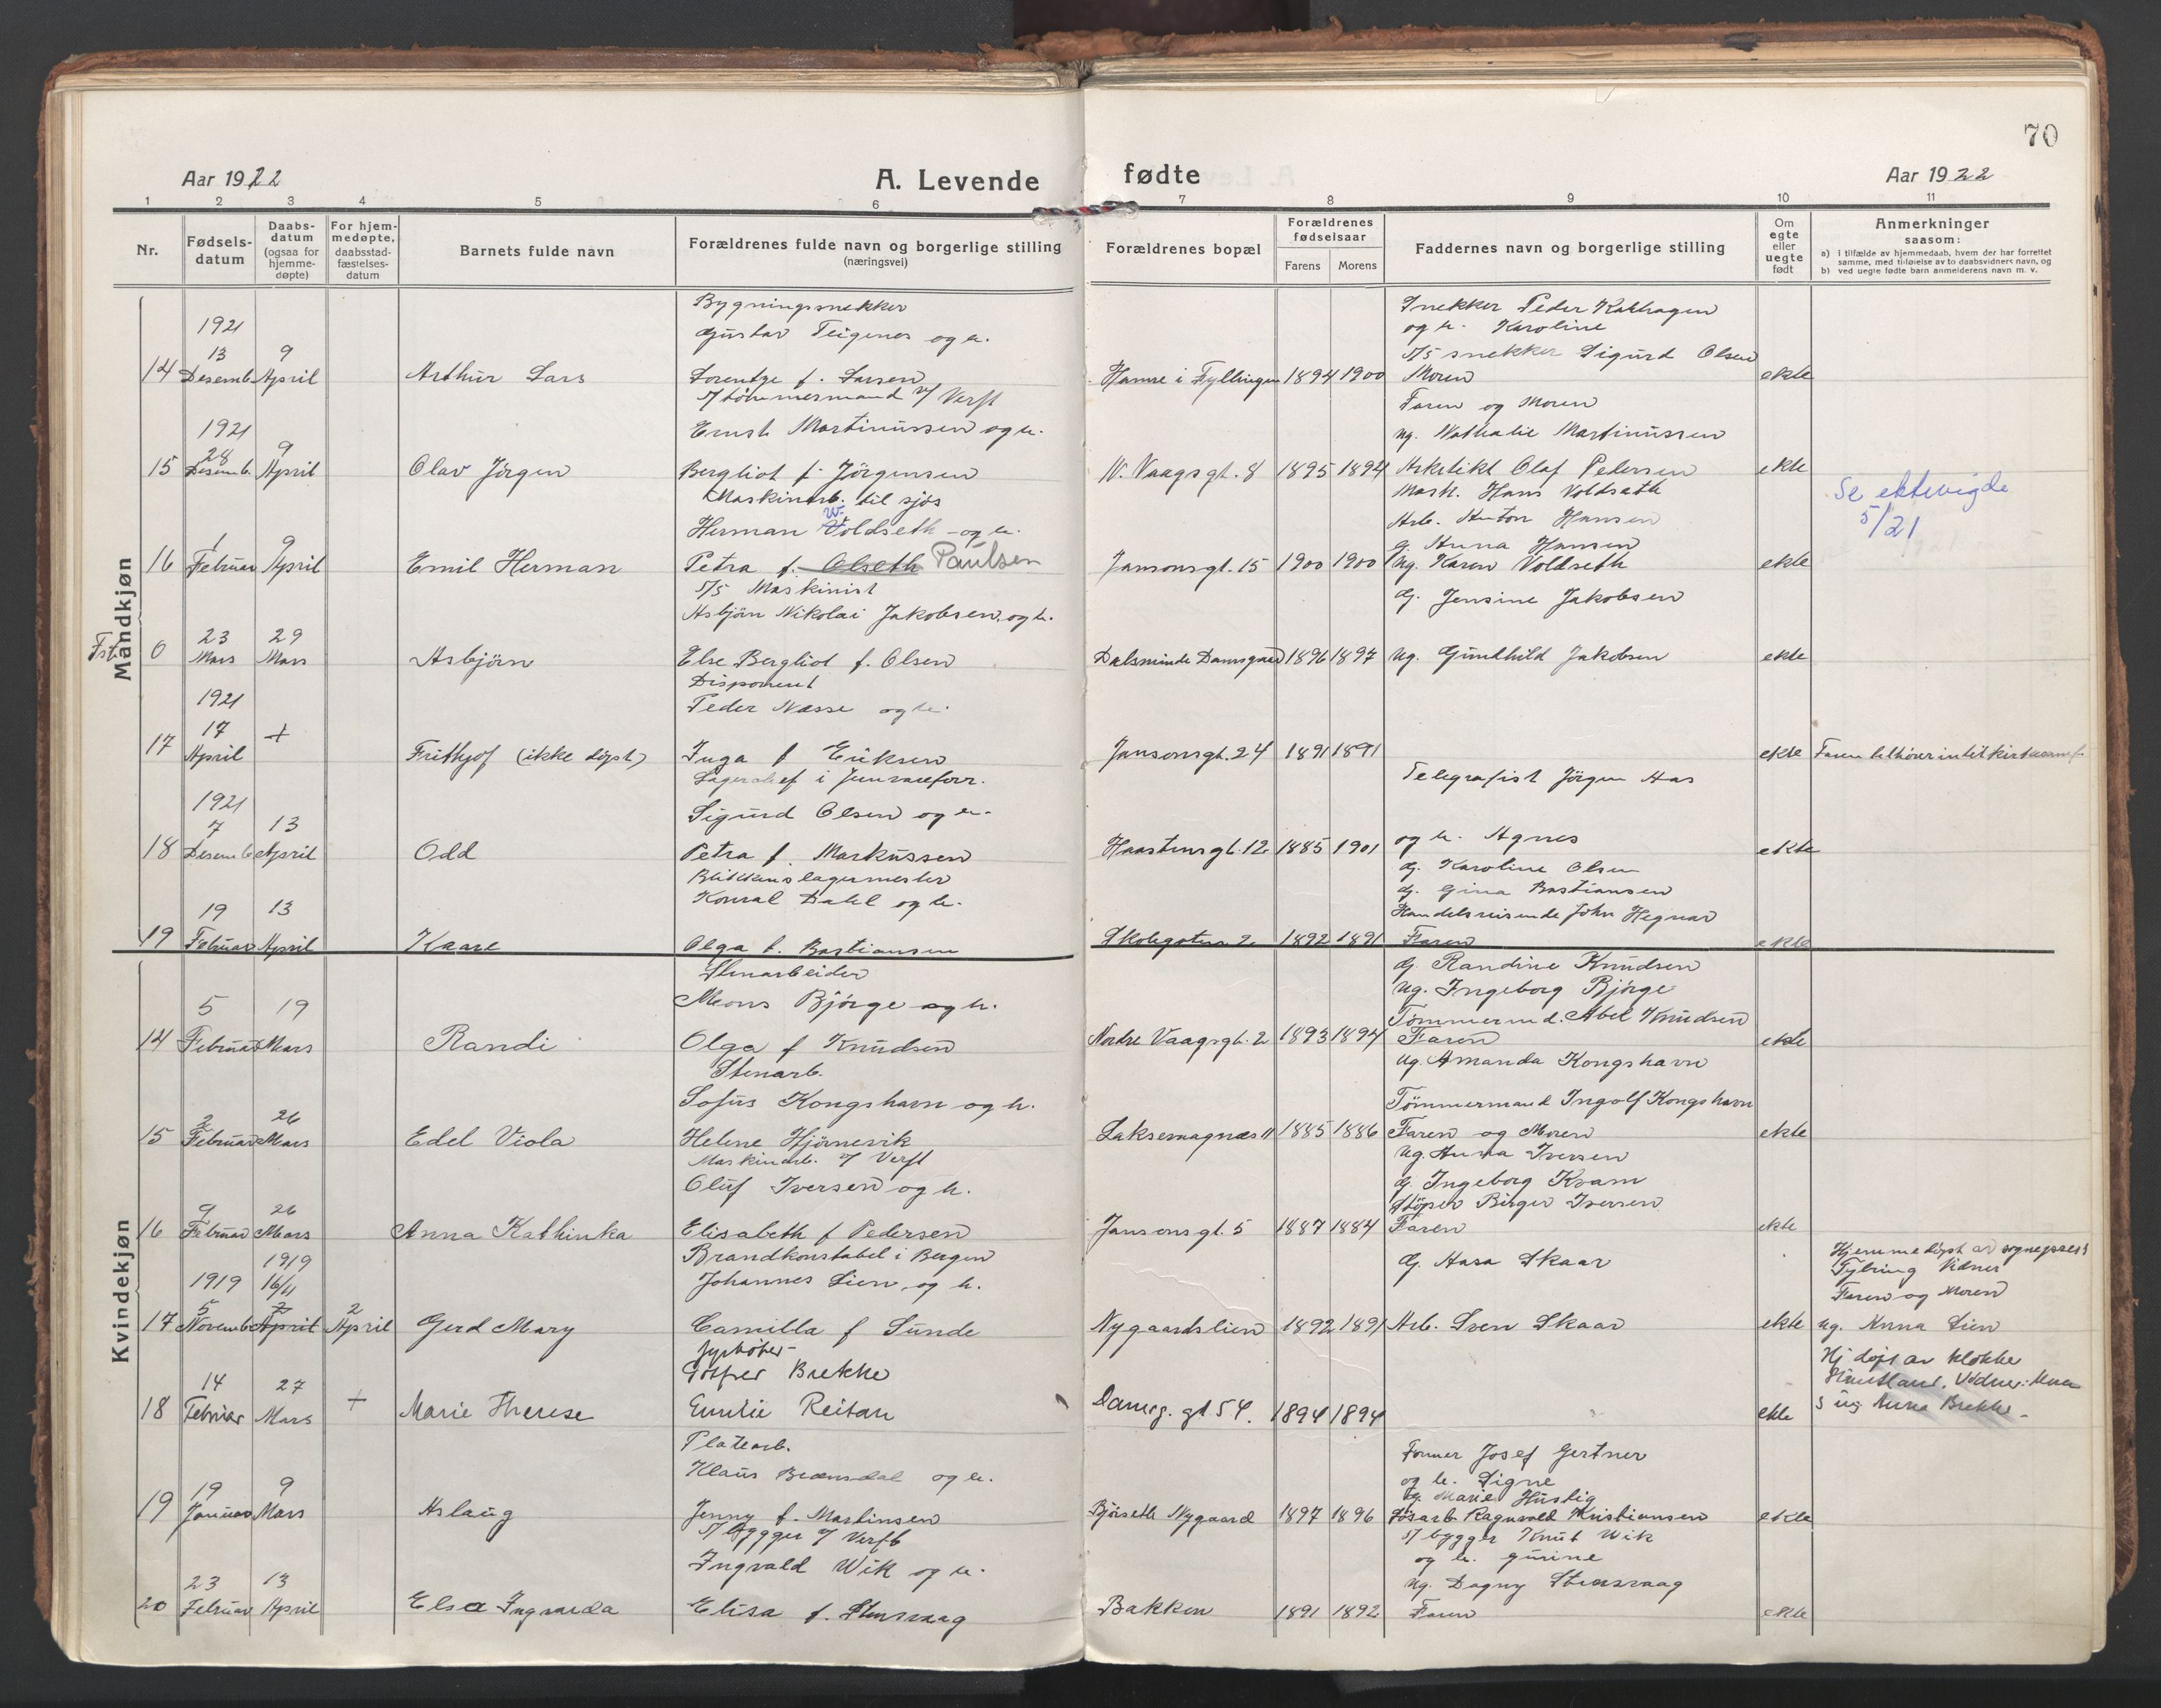 70
Aar 1922
A. Levende
fødte
Aar 1922
1 2 3 4 5 6 7 8 9 10 11
Nr.
Fødsels-
datum
Daabs-
datum
(ogsaa for
hjemme-
døpte)
For hjem-
medøpte,
daabsstad-
fæstelses-
datum
Barnets fulde navn
Forældrenes fulde navn og borgerlige stilling
(næringsvei)
Forældrenes bopæl
Forældrenes
fødselsaar
Farens Morens
Faddernes navn og borgerlige stilling
Om
egte
eller
uegte
født
Anmerkninger
saasom:
a) i tilfælde av hjemmedaab, hvem der har forrettet
samme, med tilføielse av to daabsvidners navn, og
b) ved uegte fødte barn anmelderens navn m. v.
Mandkjøn
14
1921
13
Desemb.
9
April
Arthur Lars
Bygningssnekker
Gustav Teigenes og h.
Lorentze f. Larsen
Hamre i Fyllingen
1894 1900
Snekker Peder
og h. Karoline
S/S snekker Sigurd Olsen
Moren
ekte
15
1921
28
Desemb.
9
April
Olav Jörgen
S/tömmermand v/ Verft
Ernst Martinussen og h.
Bergliot f. Jörgensen
N. Vaagsgt. 8
1895 1894
Faren og Moren
ug. Nathalie Martinussen
Arkitekt Olaf Pedersen
ekte
16
1
Februar
9
April
Emil Herman
Maskinarb. til sjös
W.
Herman Voldseth og h.
Petra f. Olseth Paulsen
Jansonsgt. 15
1900 1900
Mask. Hans Voldseth
Arb. Anton Hansen
g. Anna Hansen
Ug. Karen Voldseth
ekte
Se ektevigde
5/21
Fst. 0
23
Mars
29
Mars
Asbjörn
S/S Maskinist
Asbjörn Nikolai Jakobsen og h.
Else Bergliot f. Olsen
Dalsminde Damsgaard
1896 1897
g. Jensine Jakobsen
Ug. Gunhild Jakobsen
ekte
17
1921
17
April
+
Frithjof (ikke döpt)
Disponent
Peder Næsse og h.
Inga f. Eriksen
Jansonsgt. 24
1891 1891
ekte
Faren
18
1921
7
Desemb.
13
April
Odd
Lagerchef i
Sigurd Olsen og h.
Petra f. Markussen
Haastensgt. 12
1885 1901
Telegrafist Jörgen Aas
og h. Agnes
g. Karoline Olsen
ekte
19
19
Februar
13
April
Kaare
Blikkenslagermester
Konrad Dahl og h.
Olga f. Bastiansen
Skolegaten 2
1892 1891
g. Gina Bastiansen
Handelsreisende John Hegnar
Faren
ekte
Kvindekjøn
14
5
Februar
19
Mars
Randi
Stenarbeider
Mons Bjórge og h.
Olga f Knudsen
Nordre Vaagsgt. 2
1893 1894
g. Randine Knudsen
ug. Ingeborg Bjórge
Tömmermd. Abel Knudsen
Faren
ekte
15
2
Februar
26
Mars
Edel Viola
Stenarb.
Sofus Kongshavn og h.
Helene Hjörnevik
Laksevaagnæs 11
1885 1886
ug. Amanda Kongshavn
Tömmermand Ingolf Kongshavn
Faren og Moren
ekte
16
9
Februar
26
Mars
Anna Kathinka
Maskinarb. v/ Verft
Oluf Iversen og h.
Elisabeth f Pedersen
Jansonsgt. 5
1887 1884
Ug. Anna Iversen
g. Ingeborg Kvam
Stöper Birger Iversen
Faren
ekte
17
1919
5
Novemb.
1919
16/11
2
April
2
April
Gerd Mary
Brandkonstabel i Bergen
Johannes Lien og h.
Camilla f Sunde
Nygaardslien
1892 1891
g. Aasa Skaar
Arb. Sven Skaar
ekte
Hjemmedöpt av sogneprest
Tybring Vidner
Faren og Moren
ug. Anna Lien
18
14
Februar
27
Mars
+
Marie Therese
Fyrböter
Brekke
Emilie Reitan
Damsg. gt 54.
1894 1894
ekte
Hj döpt av klokker
ug Anna Brekke
19
19
Januar
9
Mars
Aslaug
Platearb.
Klaus Bramsdal og h.
Jenny f. Martinsen
Björseth Nygaard
1897 1896
Former Josef Gertner
og h. Signe
g. Marie Hustig
Lösarb Ragnvald Kristiansen
ekte
20
23
Februar
13
April
Elsa Ingvarda
S/bygger v/ Verft
Ingvald Wik og h.
Elisa f. Stensvaag
Bakken
1891 1892
S/bygger Knut Wik
og h. Gurine
ug. Dagny Stensvaag
Faren
ekte